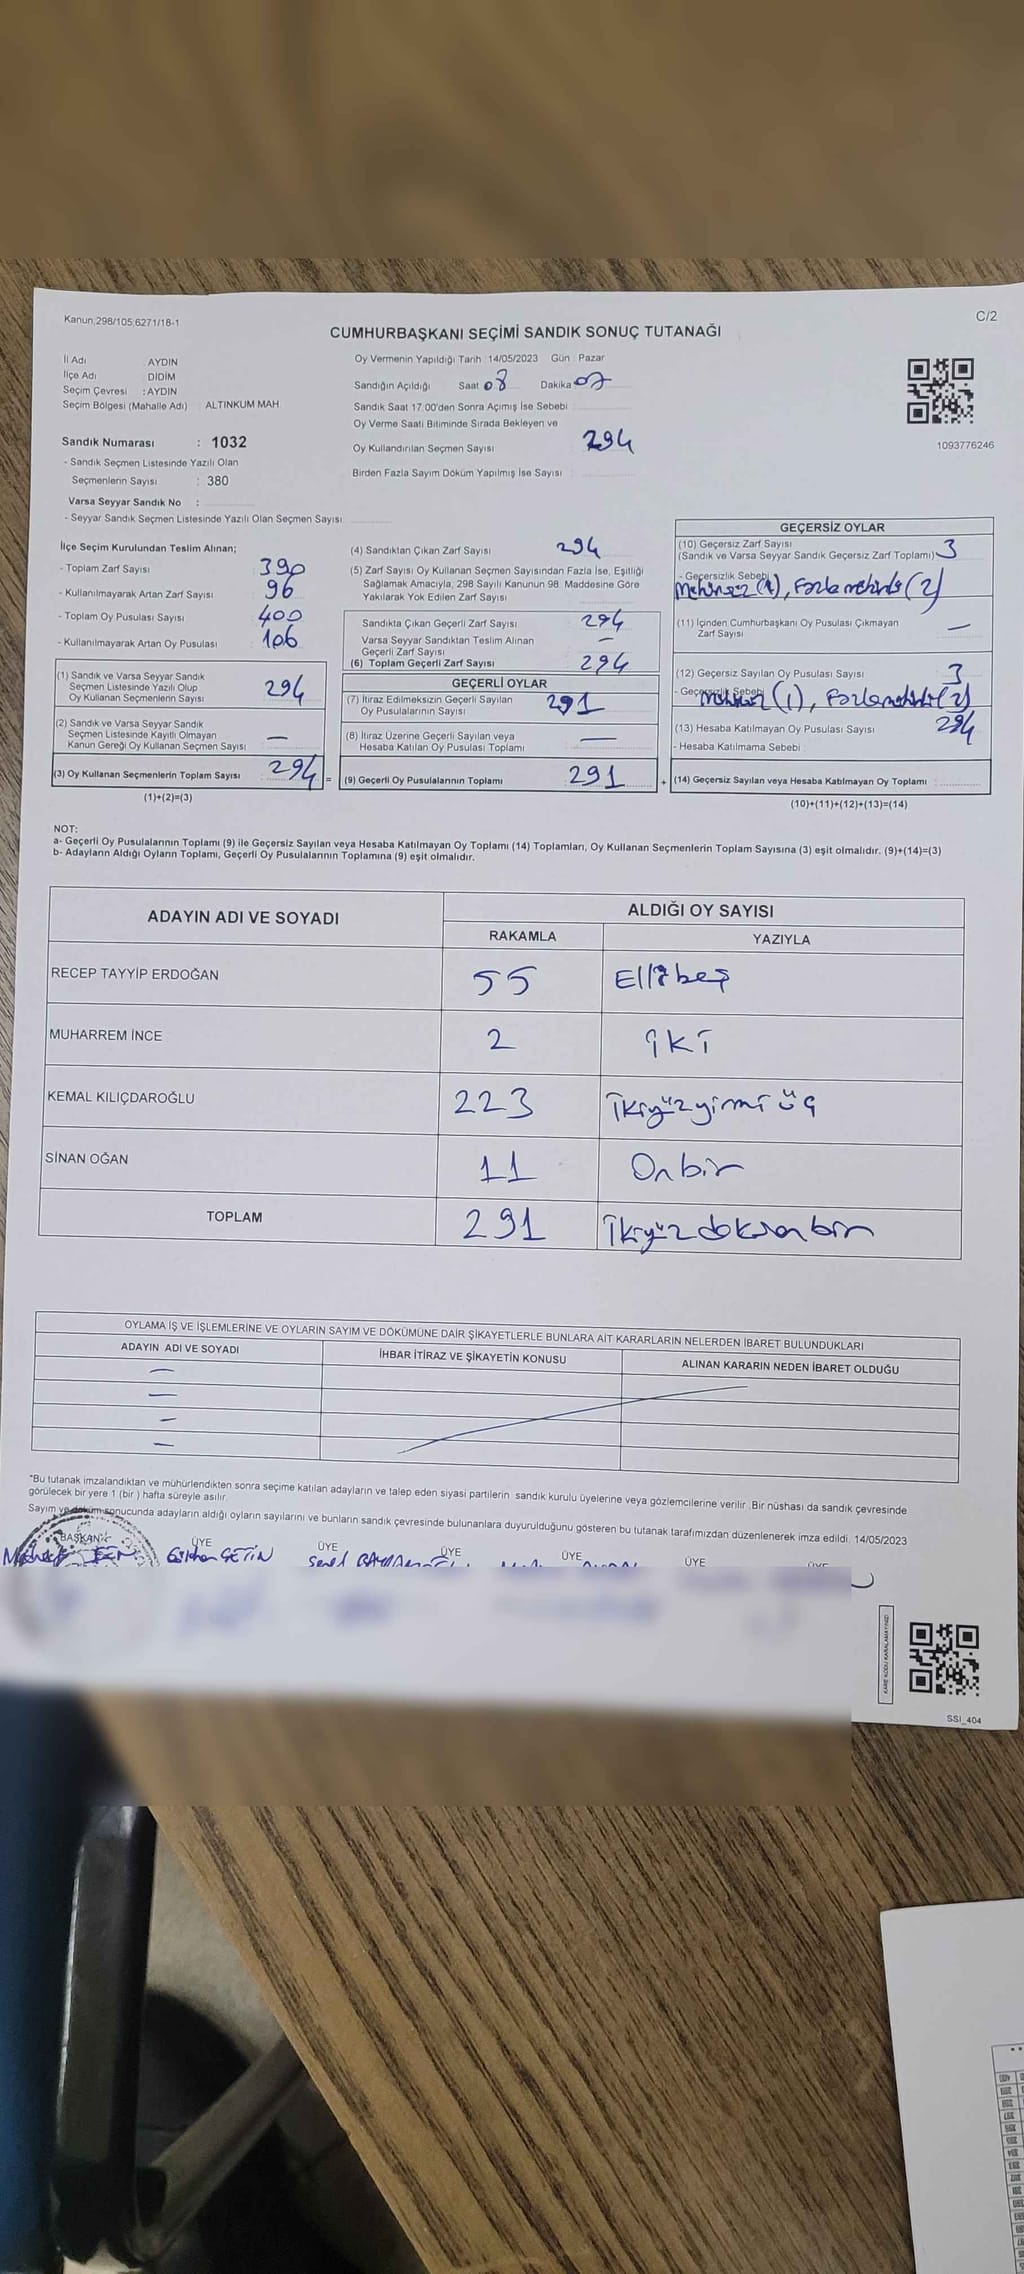 Kanun:298/105;6271/18-1
C/2
CUMHURBAŞKANI SEÇİMİ SANDIK SONUÇ TUTANAĞI
İl Adı : AYDIN
İlçe Adı : DİDİM
Seçim Çevresi : AYDIN
Seçim Bölgesi (Mahalle Adı) : ALTINKUM MAH.
Oy Vermenin Yapıldığı Tarih :14/05/2023 Gün : Pazar
Sandığın Açıldığı Saat 08 Dakika 07
Sandık Saat 17:00'den Sonra Açımış İse Sebebi :
Oy Verme Saati Bitiminde Sırada Bekleyen ve
Oy Kullandırılan Seçmen Sayısı : 294
Birden Fazla Sayım Döküm Yapılmış İse Sayısı :
1093776246
Sandık Numarası : 1032
- Sandık Seçmen Listesinde Yazılı Olan
Seçmenlerin Sayısı : 380
Varsa Seyyar Sandık No :
- Seyyar Sandık Seçmen Listesinde Yazılı Olan Seçmen Sayısı:
İlçe Seçim Kurulundan Teslim Alınan;
- Toplam Zarf Sayısı : 390
- Kullanılmayarak Artan Zarf Sayısı : 96
- Toplam Oy Pusulası Sayısı : 400
- Kullanılmayarak Artan Oy Pusulası : 106
(1) Sandık ve Varsa Seyyar Sandık
Seçmen Listesinde Yazılı Olup
Oy Kullanan Seçmenlerin Sayısı : 294
(2) Sandık ve Varsa Seyyar Sandık
Seçmen Listesinde Kayıtlı Olmayan
Kanun Gereği Oy Kullanan Seçmen Sayısı : —
(3) Oy Kullanan Seçmenlerin Toplam Sayısı : 294 =
(1)+(2)=(3)
(4) Sandıktan Çıkan Zarf Sayısı : 294
(5) Zarf Sayısı Oy Kullanan Seçmen Sayısından Fazla İse, Eşitliği
Sağlamak Amacıyla, 298 Sayılı Kanunun 98. Maddesine Göre
Yakılarak Yok Edilen Zarf Sayısı :
Sandıkta Çıkan Geçerli Zarf Sayısı : 294
Varsa Seyyar Sandıktan Teslim Alınan
Geçerli Zarf Sayısı : —
(6) Toplam Geçerli Zarf Sayısı : 294
GEÇERLİ OYLAR
(7) İtiraz Edilmeksizin Geçerli Sayılan
Oy Pusulalarının Sayısı : 291
(8) İtiraz Üzerine Geçerli Sayılan veya
Hesaba Katılan Oy Pusulası Toplamı : —
(9) Geçerli Oy Pusulalarının Toplamı : 291 +
GEÇERSİZ OYLAR
(10) Geçersiz Zarf Sayısı
(Sandık ve Varsa Seyyar Sandık Geçersiz Zarf Toplamı) : 3
- Geçersizlik Sebebi
Mühürsüz (1), Fazla mühürlü (2)
(11) İçinden Cumhurbaşkanı Oy Pusulası Çıkmayan
Zarf Sayısı : —
(12) Geçersiz Sayılan Oy Pusulası Sayısı : 3
- Geçersizlik Sebebi
Mühürsüz (1), Fazla mühürlü (2)
(13) Hesaba Katılmayan Oy Pusulası Sayısı : 294
- Hesaba Katılmama Sebebi :
(14) Geçersiz Sayılan veya Hesaba Katılmayan Oy Toplamı :
(10)+(11)+(12)+(13)=(14)
NOT:
a- Geçerli Oy Pusulalarının Toplamı (9) ile Geçersiz Sayılan veya Hesaba Katılmayan Oy Toplamı (14) Toplamları, Oy Kullanan Seçmenlerin Toplam Sayısına (3) eşit olmalıdır. (9)+(14)=(3)
b- Adayların Aldığı Oyların Toplamı, Geçerli Oy Pusulalarının Toplamına (9) eşit olmalıdır.
ADAYIN ADI VE SOYADI
ALDIĞI OY SAYISI
RAKAMLA YAZIYLA
RECEP TAYYİP ERDOĞAN 55 Ellibeş
MUHARREM İNCE 2 iki
KEMAL KILIÇDAROĞLU 223 İkiyüzyirmi üç
SİNAN OĞAN 11 Onbir
TOPLAM 291 İkiyüzdoksanbir
OYLAMA İŞ VE İŞLEMLERİNE VE OYLARIN SAYIM VE DÖKÜMÜNE DAİR ŞİKAYETLERLE BUNLARA AİT KARARLARIN NELERDEN İBARET BULUNDUKLARI
ADAYIN ADI VE SOYADI İHBAR İTİRAZ VE ŞİKAYETİN KONUSU ALINAN KARARIN NEDEN İBARET OLDUĞU
—
—
—
—
*Bu tutanak imzalandıktan ve mühürlendikten sonra seçime katılan adayların ve talep eden siyasi partilerin sandık kurulu üyelerine veya gözlemcilerine verilir. Bir nüshası da sandık çevresinde
görülecek bir yere 1 (bir) hafta süreyle asılır.
Sayım ve döküm sonucunda adayların aldığı oyların sayılarını ve bunların sandık çevresinde bulunanlara duyurulduğunu gösteren bu tutanak tarafımızdan düzenlenerek imza edildi. 14/05/2023
BAŞKAN ÜYE ÜYE ÜYE ÜYE ÜYE ÜYE
Gökhan ÇETİN
KARE KODU KARALAMAYINIZ!
SSİ_404